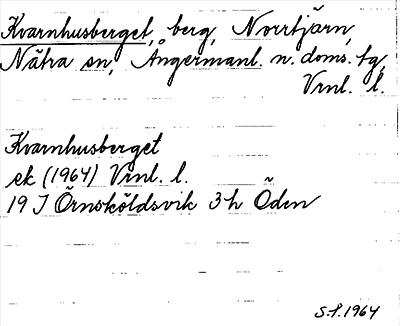 Kvarnhusberget, berg, Norrtjärn,
Nätra sn, Ångermanl. n. doms. tg,
Vrnl. l.
Kvarnhusberget
ek (1964) Vrnl. l.
19 J Örnsköldsvik 3h Öden
S.P. 1964